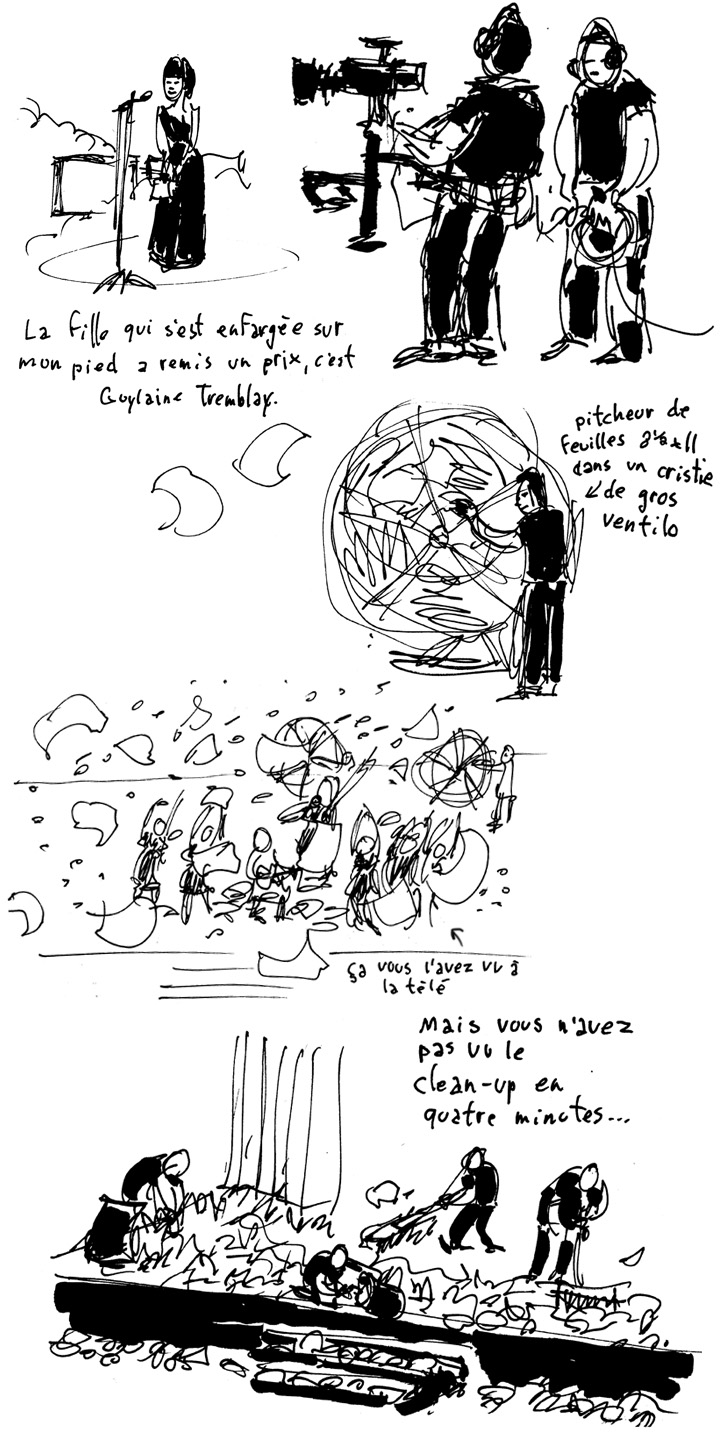 La fille qui s'est enfargée sur
mon pied a remis un prix, c'est
Guylaine Tremblay.
pitcheur de
feuilles 8½x11
dans un cristie
de gros
ventilo
Ça vous l'avez vu à
la télé
Mais vous n'avez
pas vu le
clean-up en
quatre minutes...